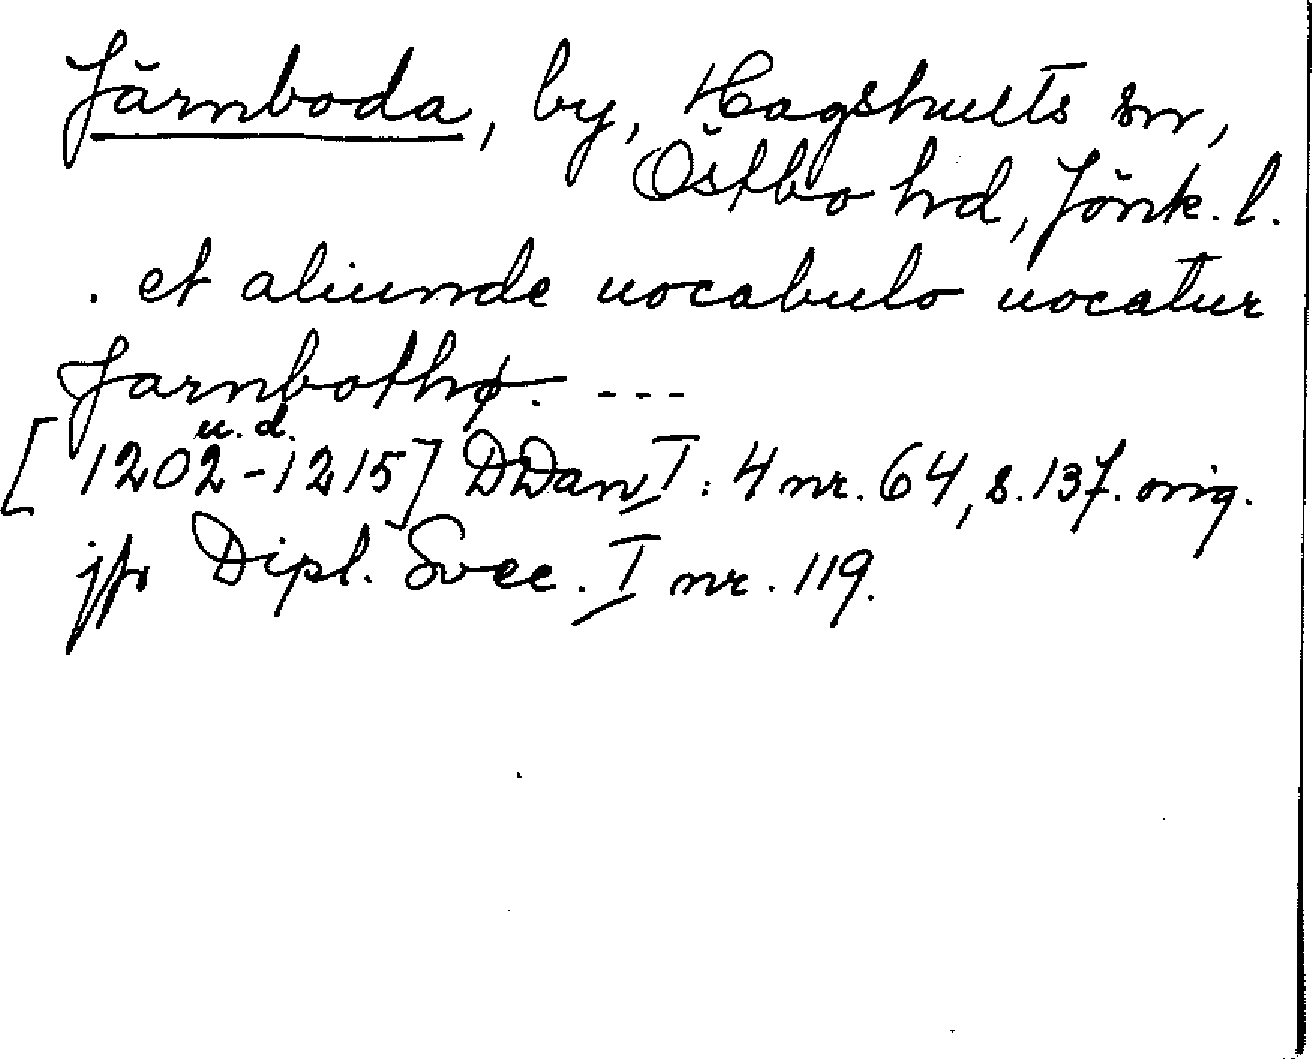 Järnboda, by, Hagshults sn,
Östbo hd, Jönk. l.
. et aliunde uocabulo uocatur
Jarnbothø. ---
u. d.
[1202-1215] DDan I: 4 nr. 64, s. 137. orig.
jfr Dipl. Svec. I nr. 119.